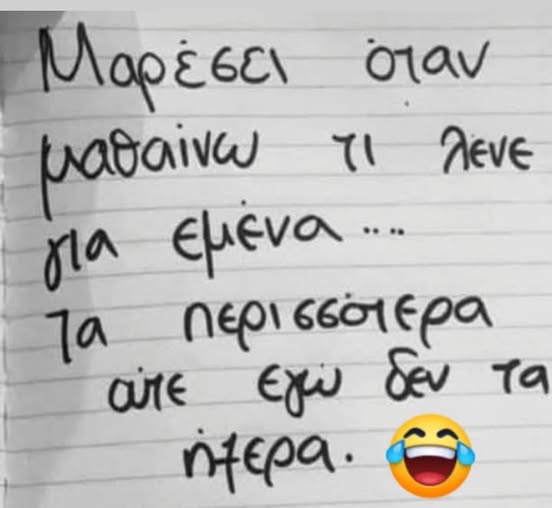 Μαρέσει όταν
μαθαίνω τι λένε
για εμένα....
Τα περισσότερα
ούτε εγώ δεν τα
ήξερα. 😂